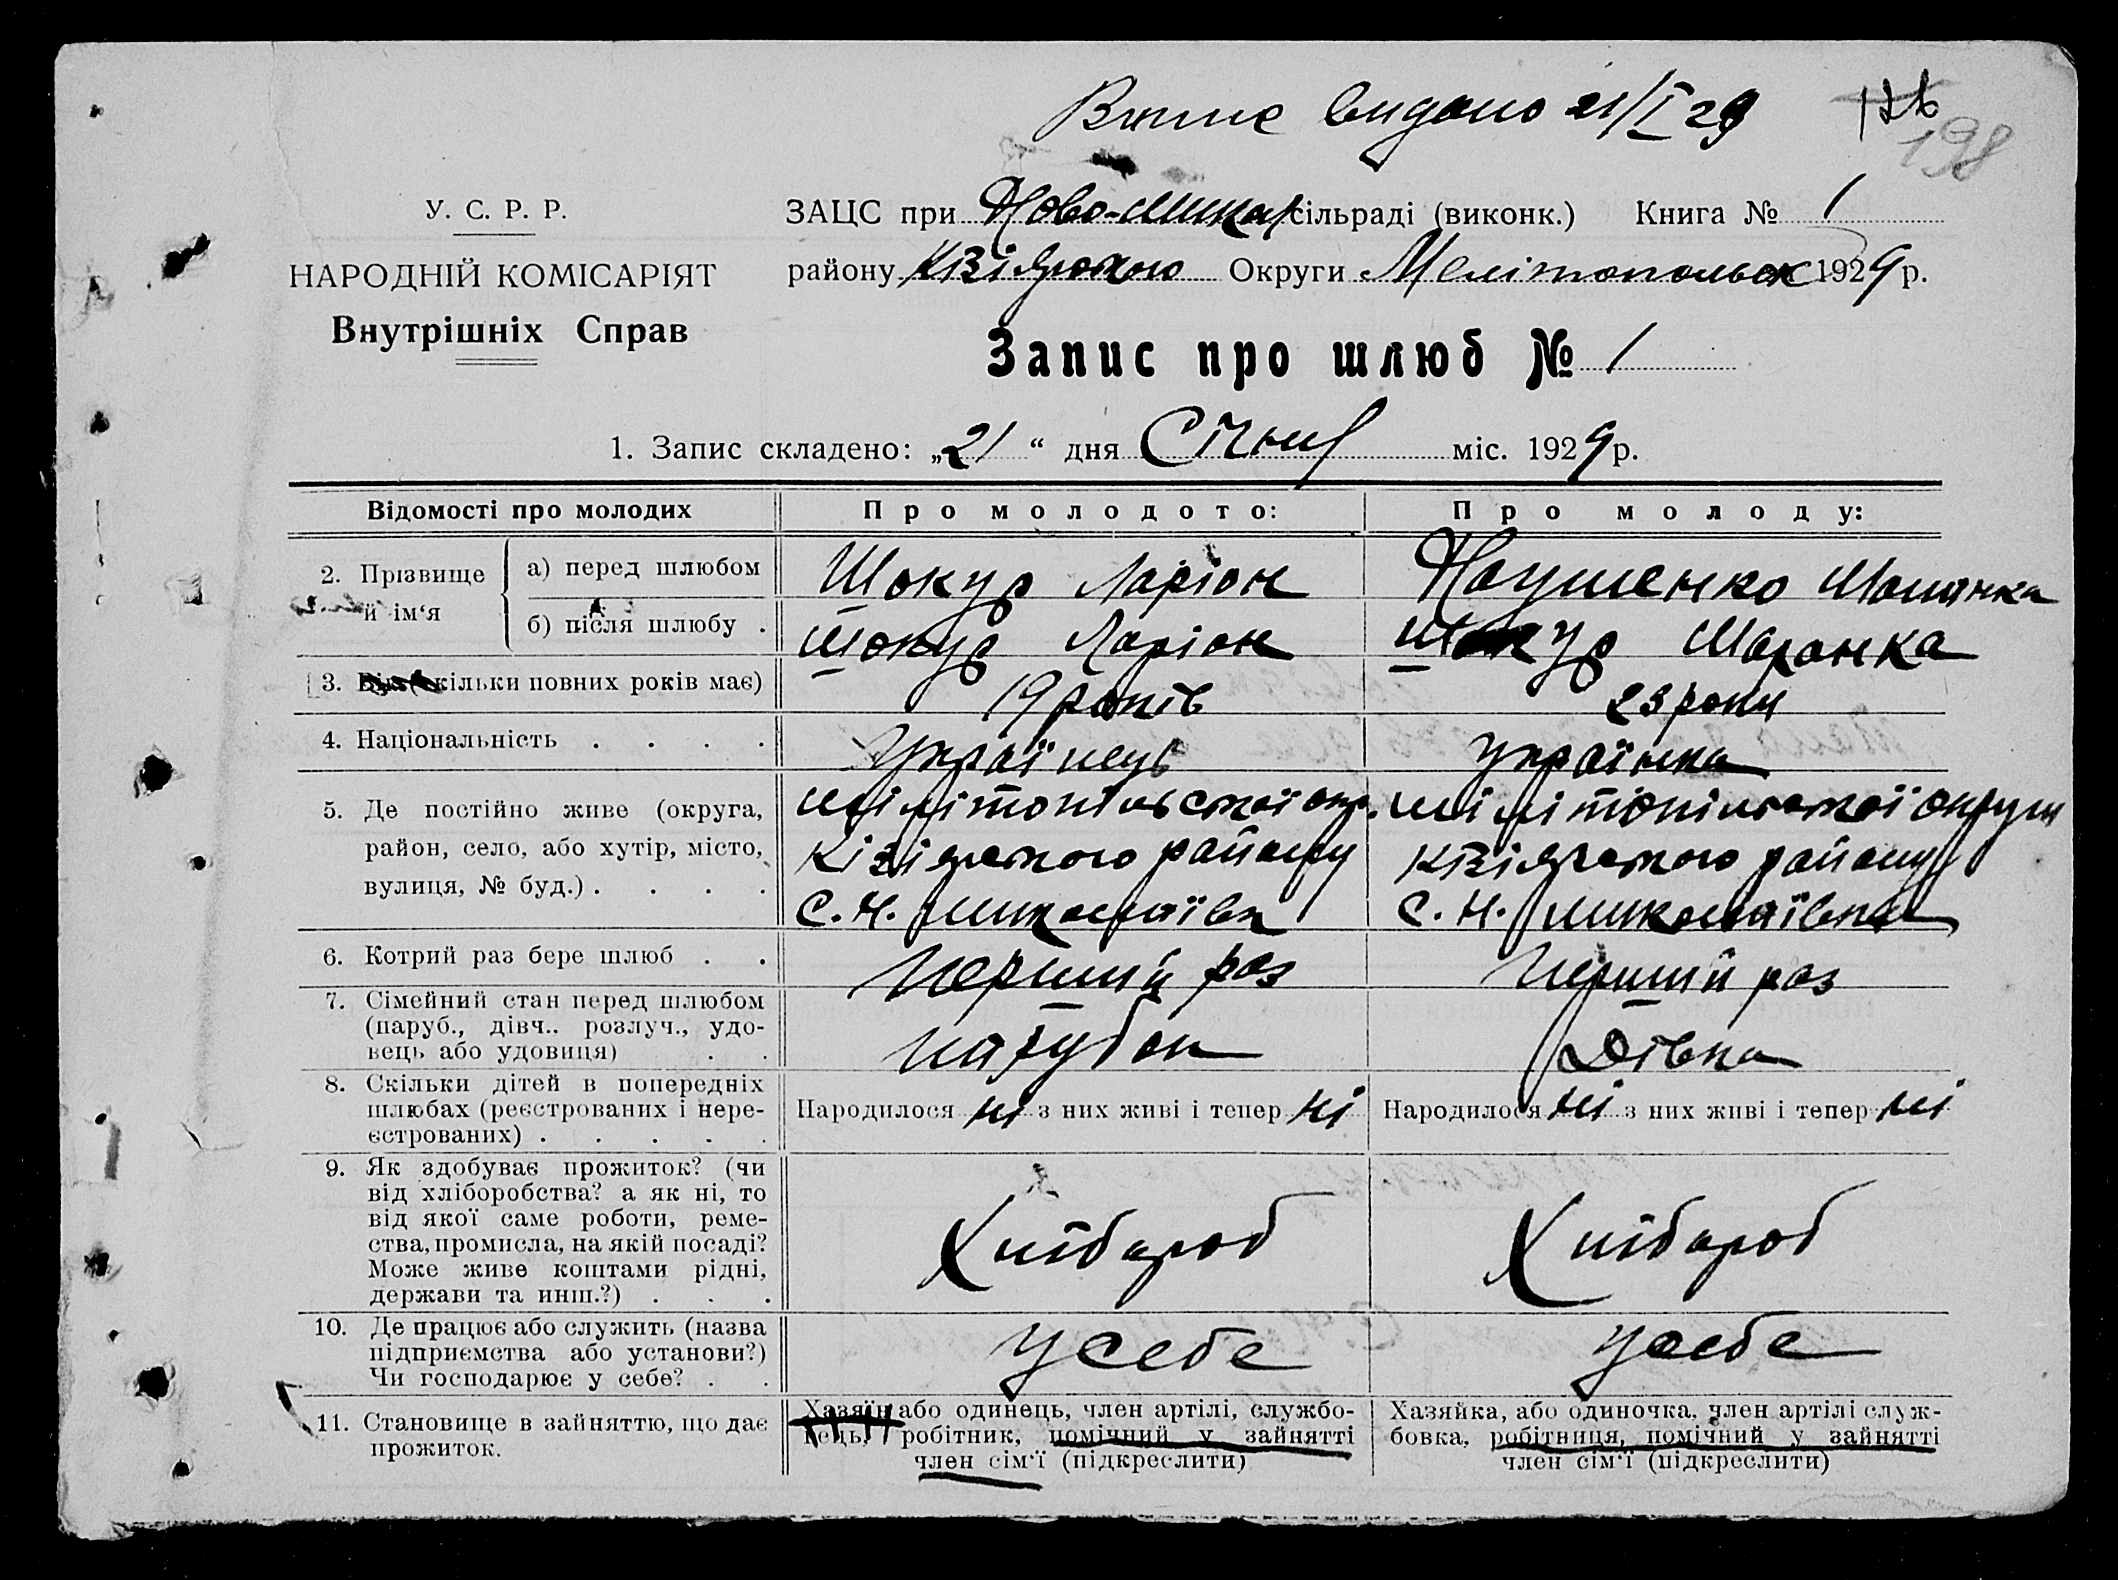 Витис видано 21/I 29
198
У. С. Р. Р.
НАРОДНІЙ КОМІСАРІЯТ
Внутрішніх Справ
ЗАЦС при Ново-Микол сільраді (виконк.) Книга № 1
району Кізіярського Округи Мелітопольськ 1929 р.
Запис про шлюб № 1
1. Запис складено: „21“ дня Січня міс. 1929 р.
Відомості про молодих
Про молодого:
Про молоду:
2. Прізвище й ім‘я
а) перед шлюбом
Шокур Ларіон
Наушенко
б) після шлюбу .
Шокур Ларіон
Шокур Маранка
3. Вік (скільки повних років має)
19 років
23 роки
4. Національність . . . .
Українець
Українка
5. Де постійно живе (округа,
район, село, або хутір, місто,
вулиця, № буд.) . . . .
Мілітопільської окр.
Кізіярського району
С. Н. Миколаївка
Мілітопільської округи
Кізіярського району
С. Н. Миколаївка
6. Котрий раз бере шлюб . .
Перший раз
Перший раз
7. Сімейний стан перед шлюбом
(паруб., дівч.. розлуч., удо-
вець або удовиця) . .
парубок
Дівка
8. Скільки дітей в попередніх
шлюбах (реєстрованих і нере-
єстрованих) . . . . .
Народилося ні з них живі і тепер ні
Народилося ні з них живі і тепер ні
9. Як здобуває прожиток? (чи
від хліборобства? а як ні, то
від якої саме роботи, реме-
ства, промисла, на якій посаді?
Може живе коштами рідні,
держави та инш.?) . . .
Хлібароб
Хлібароб
10. Де працює або служить (назва
підприємства або установи?)
Чи господарює у себе? . .
У себе
У себе
11. Становище в зайняттю, що дає
прожиток.
Хазяїн або одинець, член артілі, службо-
вець, робітник, помічний у зайнятті
член сім‘ї (підкреслити)
Хазяйка, або одиночка, член артілі служ-
бовка, робітниця, помічний у зайнятті
член сім‘ї (підкреслити)